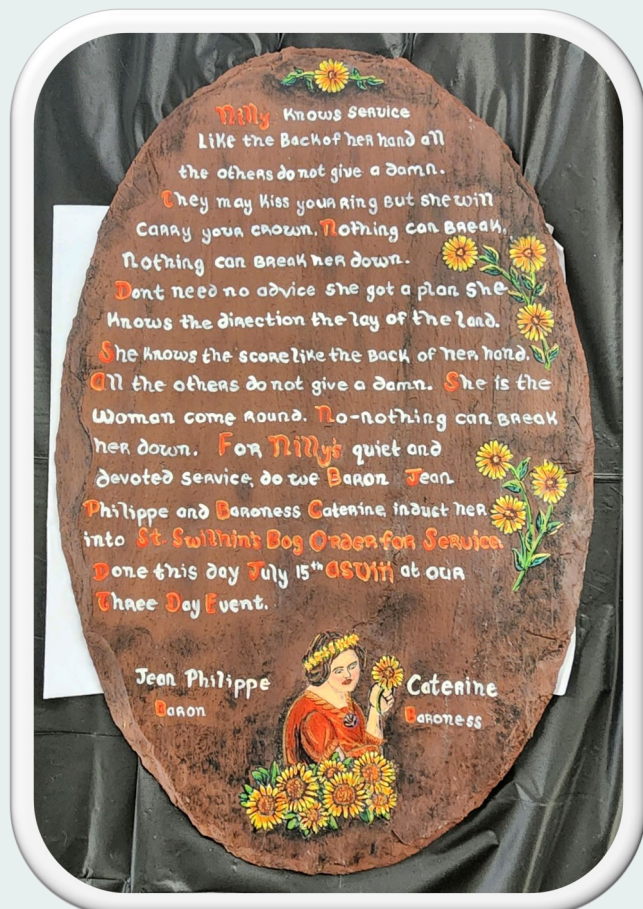 Nilly knows service
Like the Back of her hand all
the others do not give a damn.
They may kiss your Ring But she will
carry your crown. Nothing can Break,
Nothing can Break her down.
Dont need no advice she got a plan She
knows the direction the lay of the land.
She knows the score like the Back of her hand.
All the others do not give a damn. She is the
Woman come Round. No-nothing can Break
her down. For Nilly's quiet and
devoted service, do we Baron Jean
Philippe and Baroness Caterine, induct her
into St. Swithin's Bog Order for Service.
Done this day July 15th ASVIII at our
Three Day Event.
Jean Philippe
Baron
Caterine
Baroness